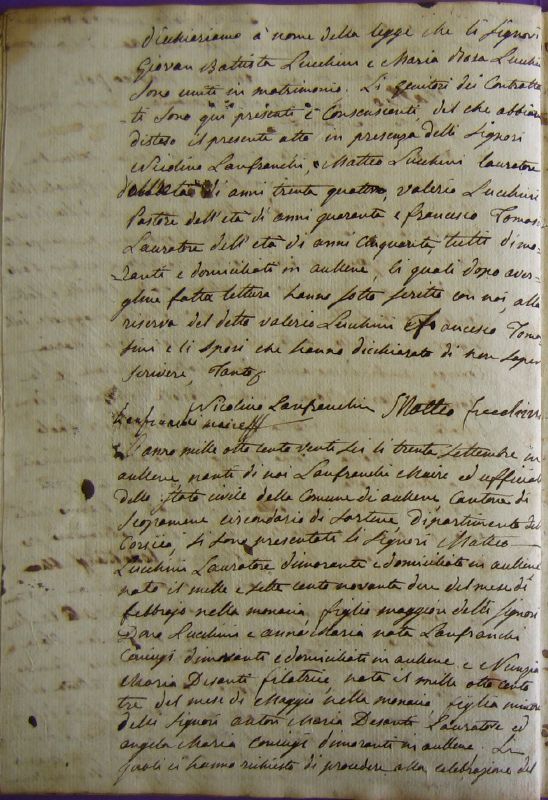 dicchiariamo à nome della legge che li Signori
Giovan Battista Lucchini e Maria Rosa Lucchini
sono uniti in matrimonio. Li genitori dei Contratta-
ti sono qui presenti e Consenzienti del che abbiamo
disteso il presente atto in presenza delli Signori
Nicolino Lanfranchi, Matteo Lucchini lauratore
dell'età di anni trenta quattro, valerio Lucchini
Pastore dell'età di anni quaranta e francesco Tomasi
Lauratore dell'età di anni cinquanta, tutti dimo-
ranti e domiciliati in aullene, li quali dopo aver-
gline fatta lettura hanno sotto scritto con noi, alla
riserva del detto valerio Lucchini e francesco Toma-
sini e li sposi che hanno dicchiarato di non saper
scrivere,
Nicolino Lanfranchi Matteo
Lanfranchi maire
L'anno mille otto cento venti sei li trenta Settembre in
aullene nanti di noi Lanfranchi Maire ed uffiziale
dello stato civile della Comune di aullene Cantone di
Scopamene circondario di Sartene dipartimento del
Corsica, si sono presentati li Signori Matteo
Lucchini Lauratore dimorante e domiciliati in aullene
nato il mille e sette cento novanta due del mese di
febbrajo nella medesima, figlio maggiore delli Signori
Lucchini e anna Maria nata Lanfranchi
Coniugi dimoranti e domiciliati in aullene e Nunzia
Maria Desanti filatrice, nata il mille otto cento
tre del mese di Maggio, nella medesima, figlia minore
delli Signori anton Maria Desanti Lauratore ed
angela Maria Coniugi dimoranti in aullene. Li
quali ci hanno richiesto di procedere alla celebrazione del